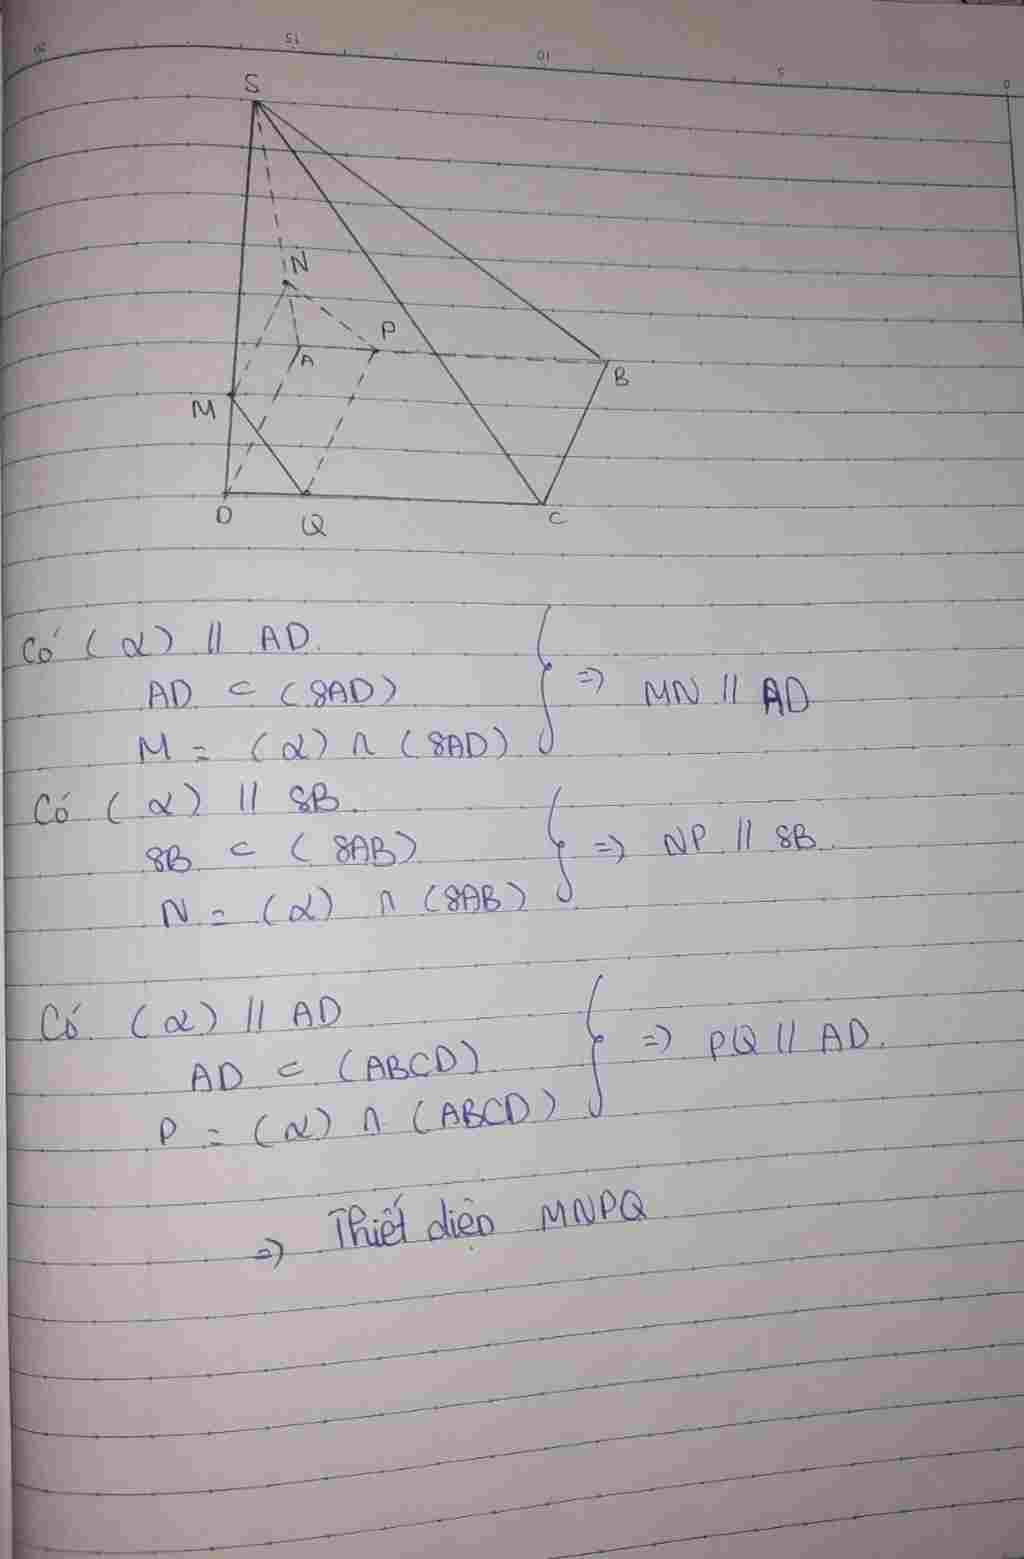 20 15 10 5 0
S
N
P
A
B
M
D
Q
C
Có (α) // AD.
AD ⊂ (SAD)
M = (α) ∩ (SAD)
=> MN // AD
Có (α) // SB.
SB ⊂ (SAB)
N = (α) ∩ (SAB)
=> NP // SB
Có (α) // AD
AD ⊂ (ABCD)
P = (α) ∩ (ABCD)
=> PQ // AD.
=> Thiết diện MNPQ